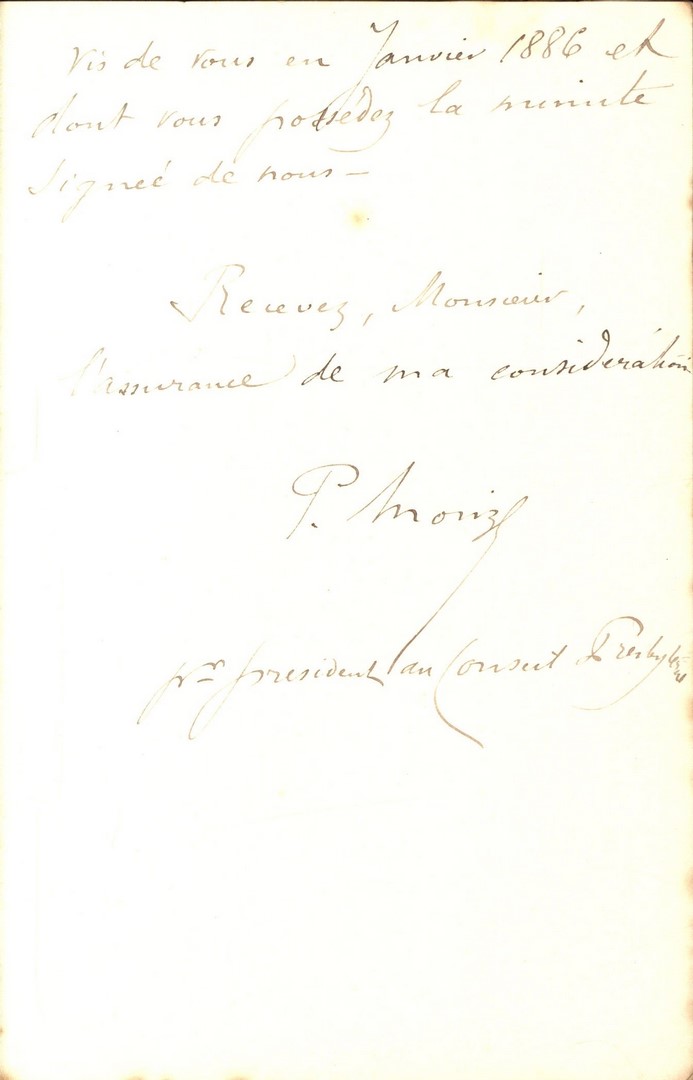 vis de vous en Janvier 1886 et
dont vous possédez la minute
signeé de nous —
Recevez, Monsieur,
l'assurance de ma considération
P. Moriz
pr président du Conseil Presbytéral